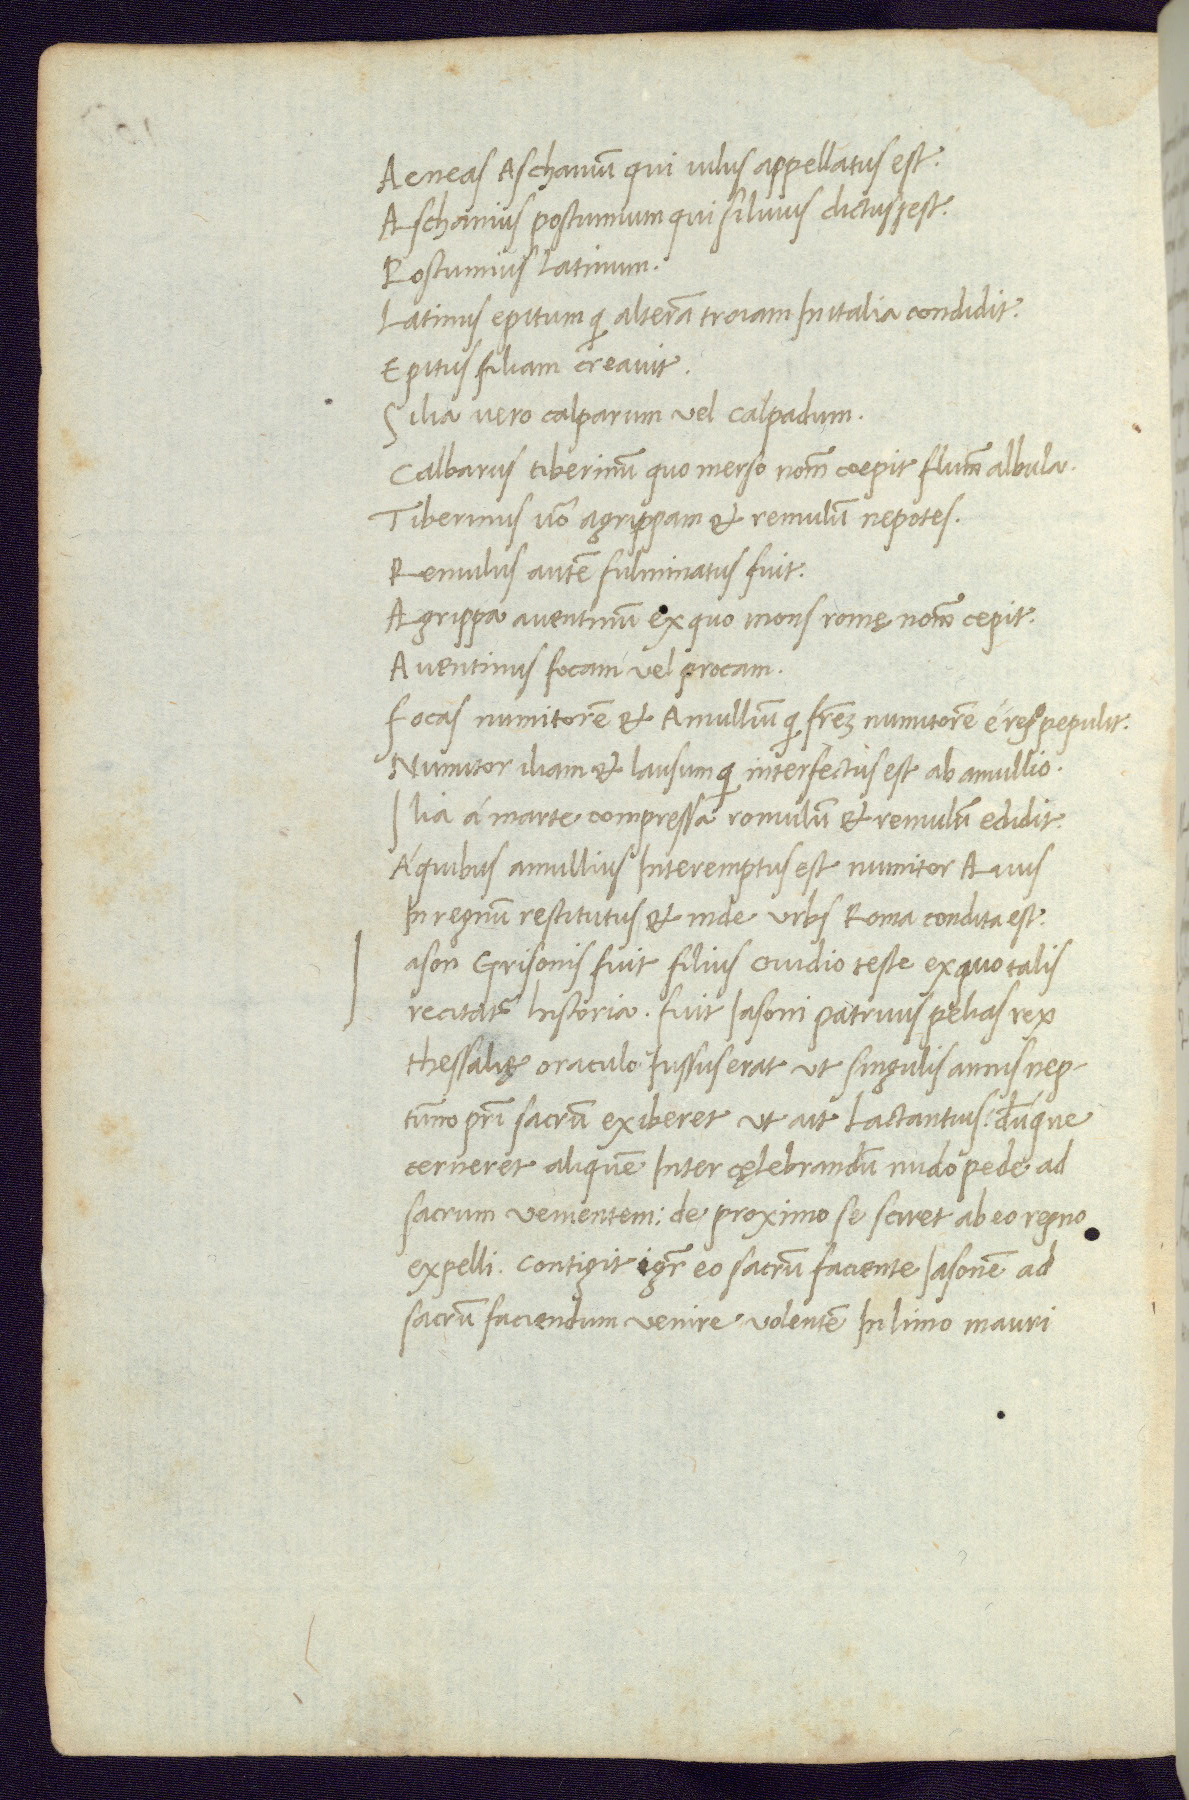 Aeneas Aschaniũ qui iulus appellatus est.
Aschanius postumium qui siluius dictus est.
Postumius Latinum.
Latinus epitum q̃ alterã troiam In italia condidit.
Epitus siliam creauit.
Silia uero calparum vel calpadum.
Calbarus tiberinũ quo merso nom̃ coepit flum̃ albula.
Tiberinus uõ agrippam & remulũ nepotes.
Remulus autẽ fulminatus fuit.
Agrippa auentinũ ex quo mons romę nom̃ cepit.
Auentinus focam vel procam.
Focas numitorẽ & Amulliũ q̃ frẽz numitorẽ é reg̊ pepulit.
Numitor iliam & lausum q̃ interfectus est ab amullio.
Ilia á marte compressa romulũ & remulũ edidit.
Á quibus amullius Interemptus est numitor Auus
In regnũ restitutus & inde vrbs Roma condita est.
Iason Grisonis fuit filius ouidio teste ex quo talis
recitat᷑ historia. fuit Iasoni patruus pelias rex
thessalię oraculo Iussus erat vt singulis annis nep
tũno pr̃i sacrũ exiberet vt ait Lactantius: dũque
cerneret aliquẽ Inter cęlebrandũ nudo pede ad
sacrum venientem: de proximo se sciret ab eo regno
expelli. Contigit igr̃ eo sacrũ faciente Iasonẽ ad
sacrũ faciendum venire volentẽ In limo mauri